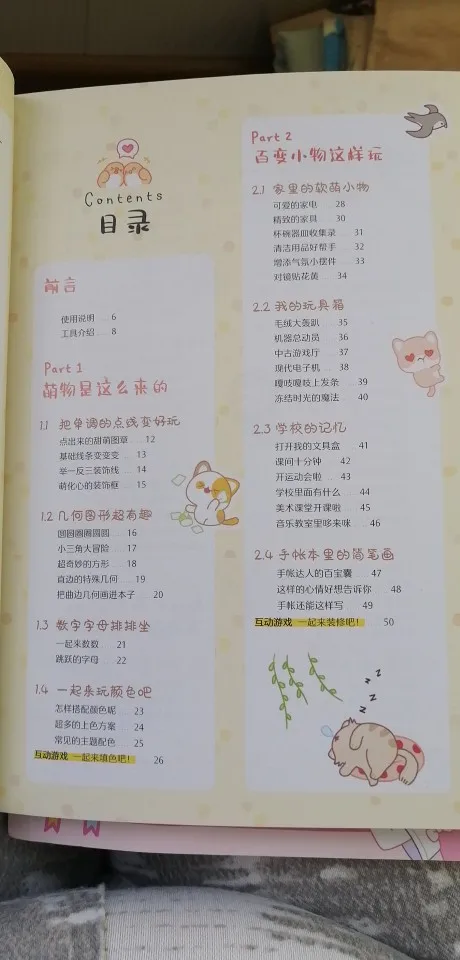 Contents
目录
前言
使用说明 ... 6
工具介绍 ... 8
Part 1
萌物是这么来的
1.1 把单调的点线变好玩
点出来的甜萌图章 ... 12
基础线条变变变 ... 13
举一反三装饰线 ... 14
萌化心的装饰框 ... 15
1.2 几何图形超有趣
圆圆圈圈圆圆 ... 16
小三角大冒险 ... 17
超奇妙的方形 ... 18
直边的特殊几何 ... 19
把曲边几何画进本子 ... 20
1.3 数字字母排排坐
一起来数数 ... 21
跳跃的字母 ... 22
1.4 一起来玩颜色吧
怎样搭配颜色呢 ... 23
超多的上色方案 ... 24
常见的主题配色 ... 25
互动游戏 一起来填色吧! 26
Part 2
百变小物这样玩
2.1 家里的软萌小物
可爱的家电 ... 28
精致的家具 ... 30
杯碗器皿收集录 ... 31
清洁用品好帮手 ... 32
增添气氛小摆件 ... 33
对镜贴花黄 ... 34
2.2 我的玩具箱
毛绒大轰趴 ... 35
机器总动员 ... 36
中古游戏厅 ... 37
现代电子机 ... 38
嘎吱嘎吱上发条 ... 39
冻结时光的魔法 ... 40
2.3 学校的记忆
打开我的文具盒 ... 41
课间十分钟 ... 42
开运动会啦 ... 43
学校里面有什么 ... 44
美术课堂开课啦 ... 45
音乐教室里哆来咪 ... 46
2.4 手帐本里的简笔画
手帐达人的百宝囊 ... 47
这样的心情好想告诉你 ... 48
手帐还能这样写 ... 49
互动游戏 一起来装修吧! 50
z z z